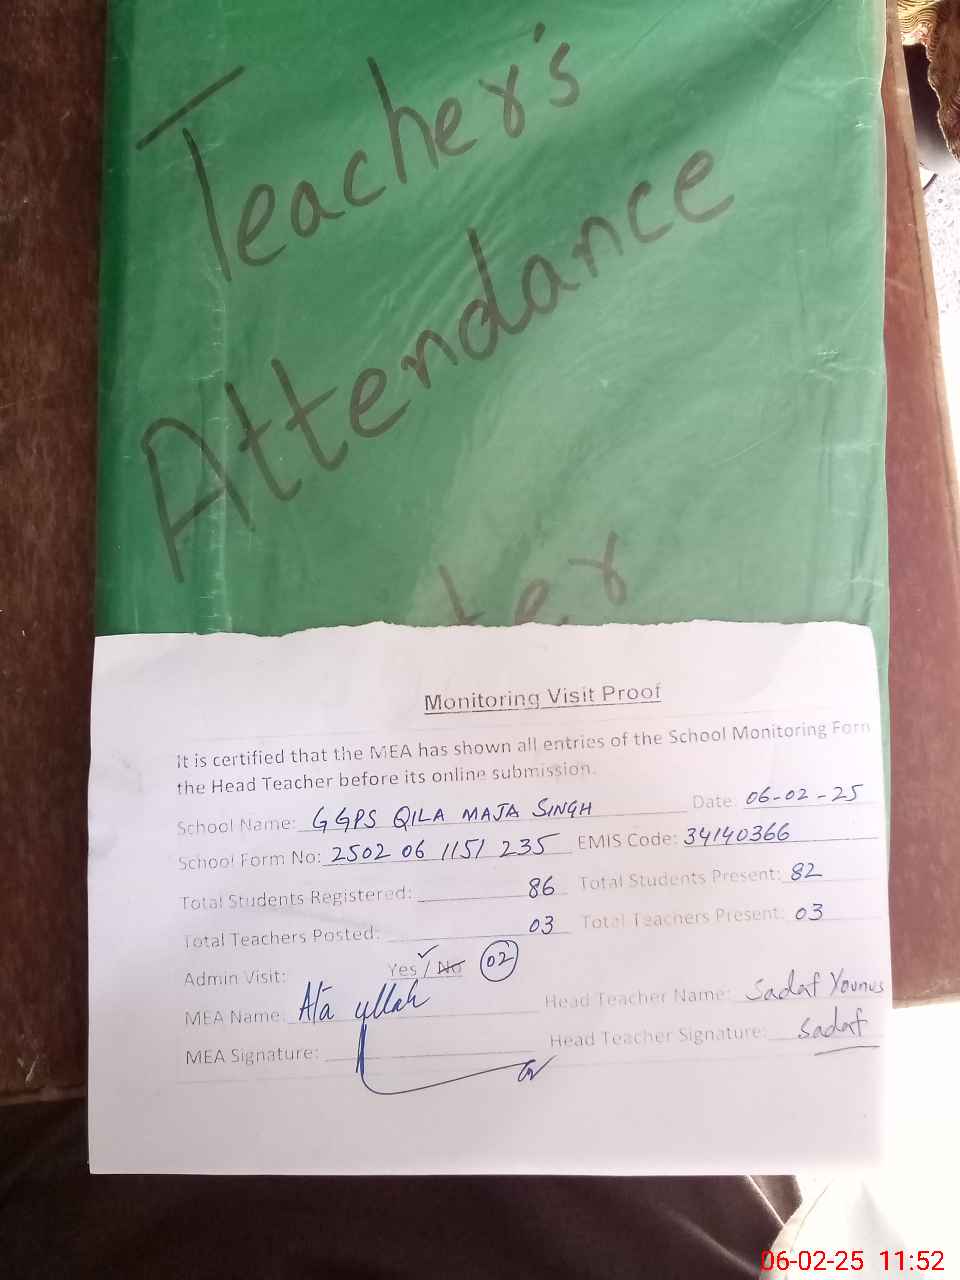 Teacher's
Attendance
ter
Monitoring Visit Proof
It is certified that the MEA has shown all entries of the School Monitoring Form
the Head Teacher before its online submission.
School Name: GGPS QILA MAJA SINGH Date: 06-02-25
School Form No: 2502 06 1151 235 EMIS Code: 34140366
Total Students Registered: 86 Total Students Present: 82
Total Teachers Posted: 03 Total Teachers Present: 03
Admin Visit: Yes / No 02
MEA Name: Ata ullah Head Teacher Name: Sadaf Younus
MEA Signature: Head Teacher Signature: Sadaf
06-02-25 11:52